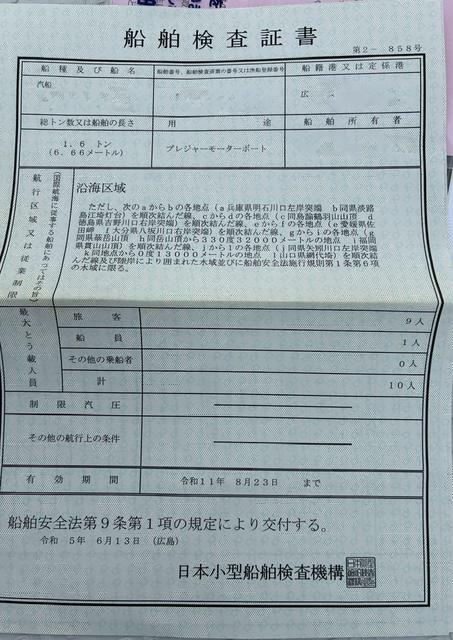 船舶検査証書
第2－ 858号
船種及び船名
船舶番号、船舶検査済票の番号又は漁船登録番号
船籍港又は定係港
汽船
広
総トン数又は船舶の長さ
用途
船舶所有者
1．6 トン
(6．66メートル)
プレジャーモーターボート
航行区域又は従業制限
(国際航海に従事する船舶にあってはその旨)
沿海区域
ただし、次のaからbの各地点（a兵庫県明石川口左岸突端 b同県淡路
島江埼灯台）を順次結んだ線、cからdの各地点（c同島諭鶴羽山山頂 d
徳島県吉野川口右岸突端）を順次結んだ線、eからfの各地点（e愛媛県佐
田岬 f大分県八坂川口右岸突端）を順次結んだ線、gからiの各地点（g
同県華岳山頂 h同岳山頂から330度32000メートルの地点 i福岡
県貫山山頂）を順次結んだ線、jからlの各地点（j同県矢別川口左岸突端
k同地点から0度13000メートルの地点 l山口県網代埼）を順次結
んだ線及び陸岸により囲まれた水域並びに船舶安全法施行規則第1条第6項
の水域に限る。
最大とう載人員
旅客
9人
船員
1人
その他の乗船者
0人
計
10人
制限汽圧
その他の航行上の条件
有効期間
令和11年 8月23日 まで
船舶安全法第9条第1項の規定により交付する。
令和 5年 6月13日 （広島）
日本小型船舶検査機構